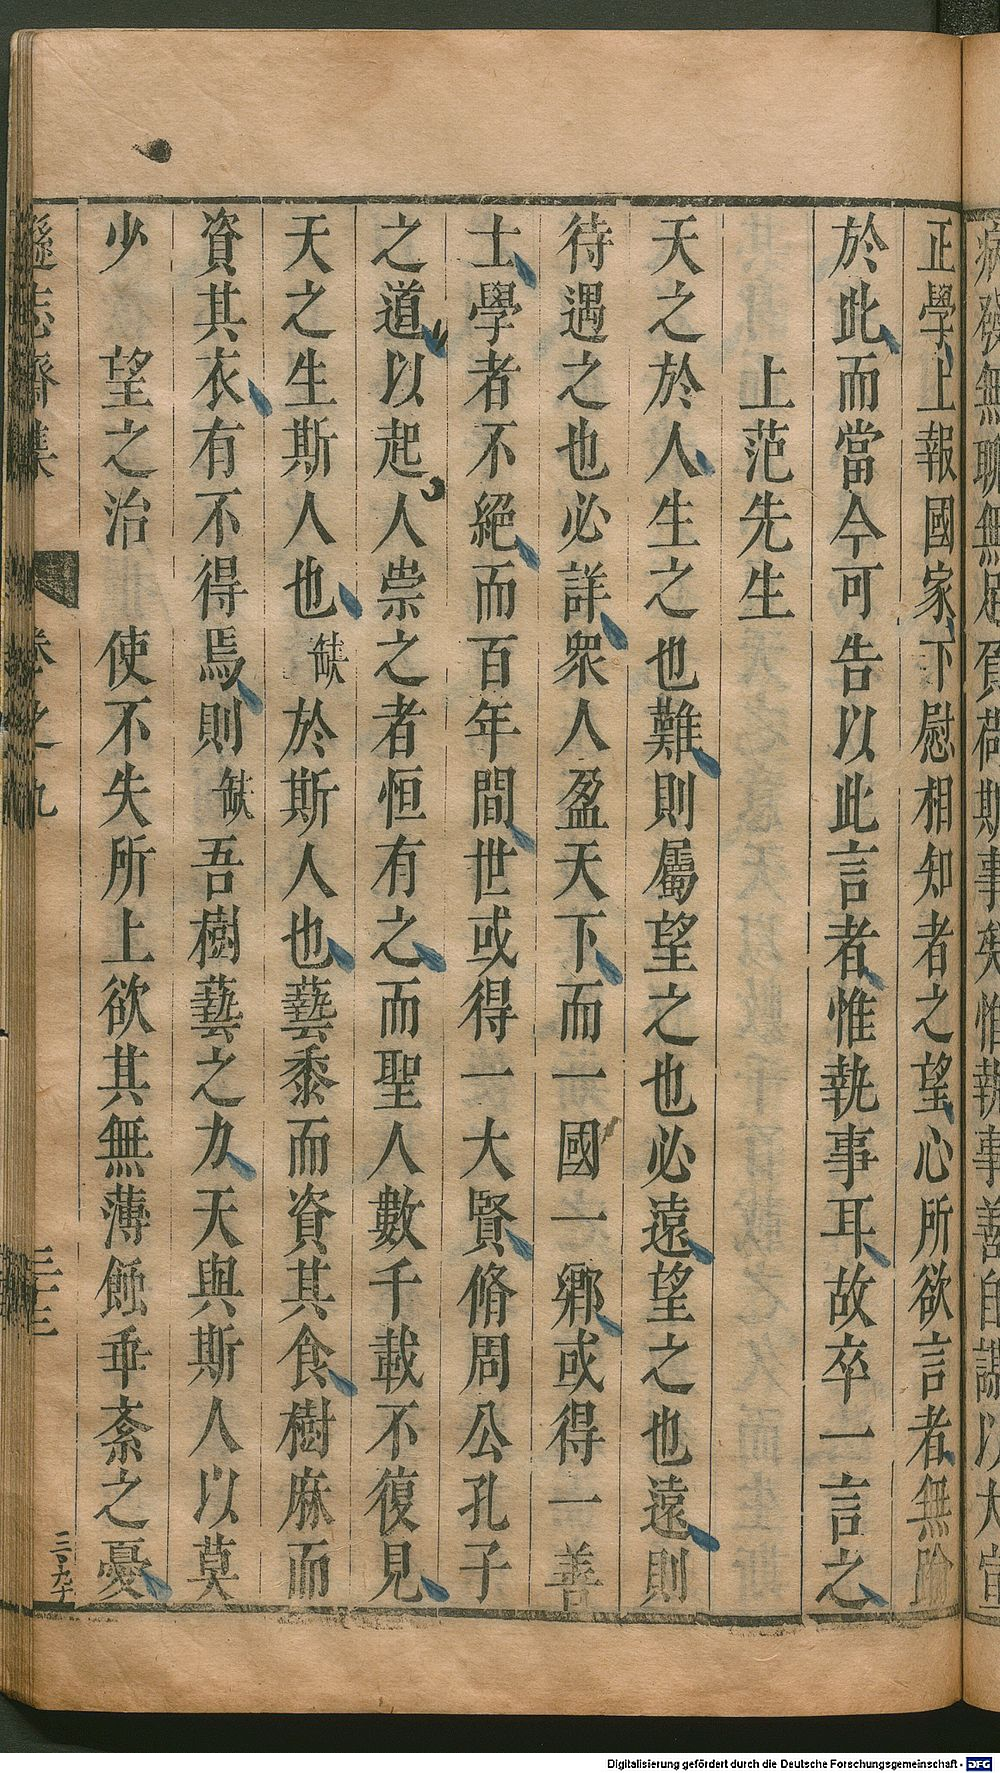 病發無聊無足負荷斯事矣惟執事善自謀以大宣
正學上報國家下慰相知者之望心所欲言者無踰
於此而當今可告以此言者惟執事耳故卒一言之
上范先生
天之於人生之也難則屬望之也必遠望之也遠則
待遇之也必詳衆人盈天下而一國一鄉或得一善
士學者不絕而百年間世或得一大賢脩周公孔子
之道以起人祟之者恒有之而聖人數千載不復見
天之生斯人也缺於斯人也藝黍而資其食樹麻而
資其衣有不得焉則缺吾樹藝之力天與斯人以莫
少 望之治 使不失所上欲其無薄蝕乖紊之憂
遜志齋集 卷之九 三十三
Digitalisierung gefördert durch die Deutsche Forschungsgemeinschaft - DFG